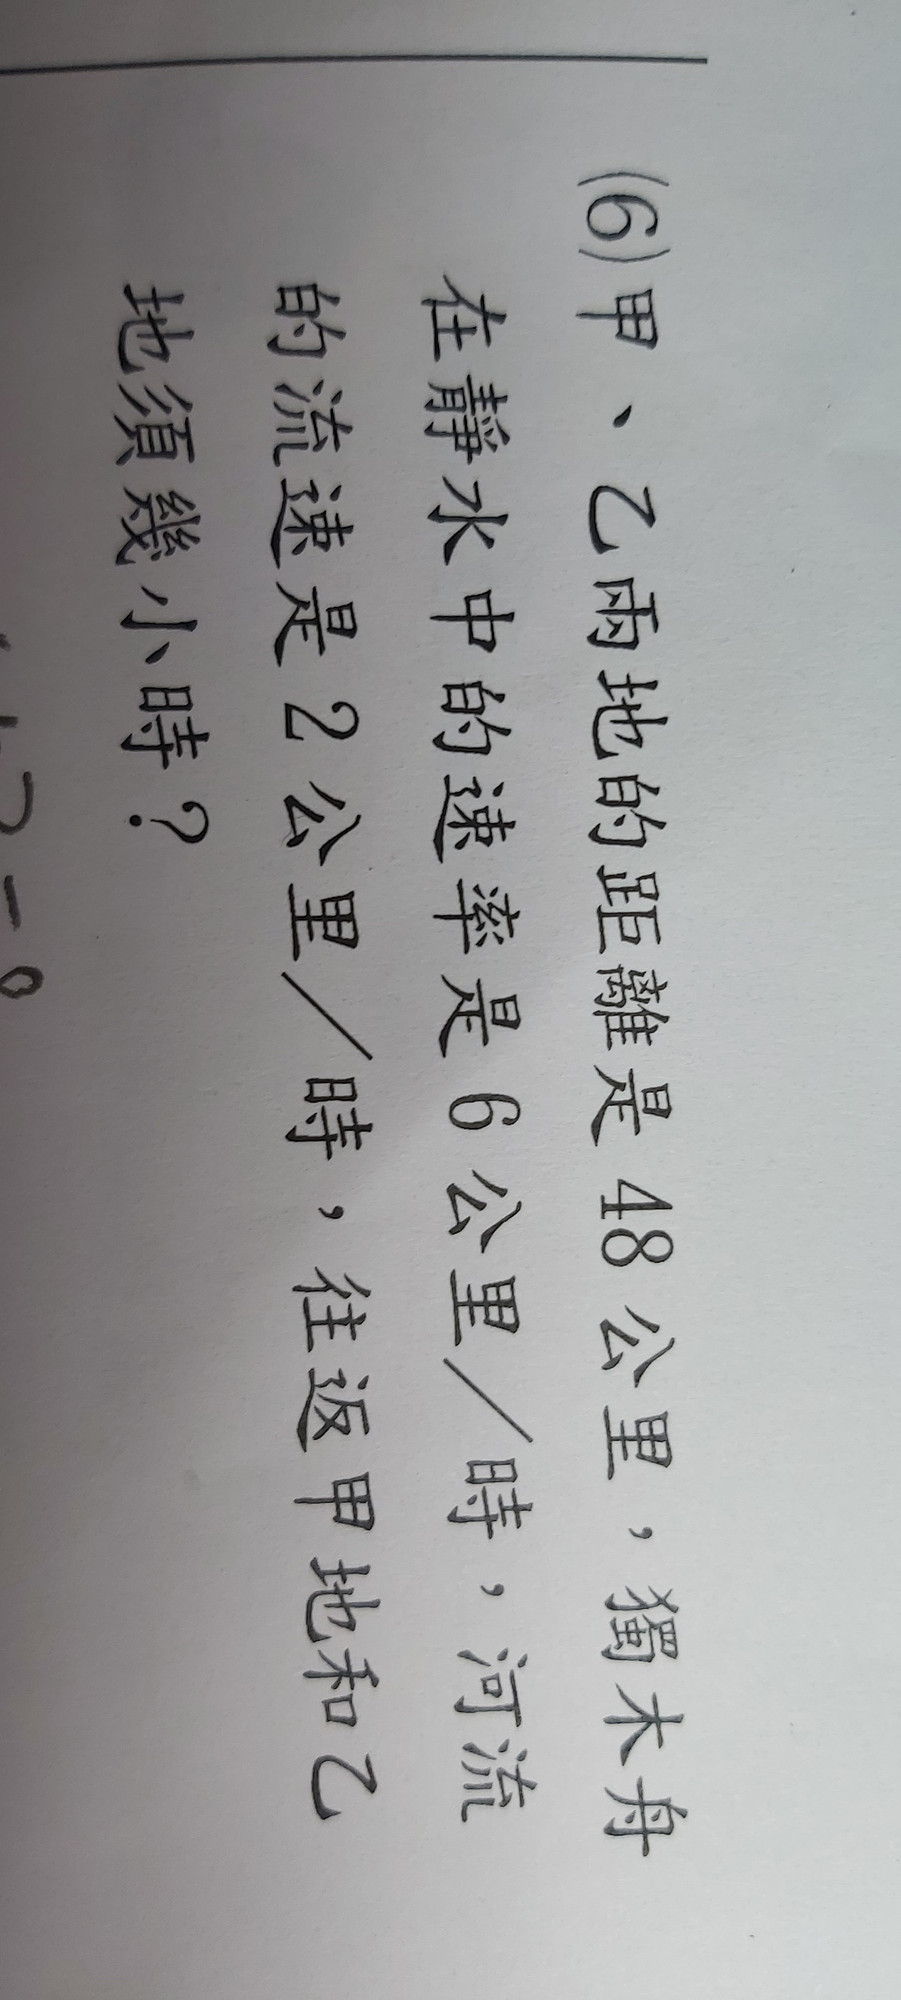 (6)甲、乙兩地的距離是 48 公里，獨木舟
在靜水中的速率是 6 公里／時，河流
的流速是 2 公里／時，往返甲地和乙
地須幾小時？